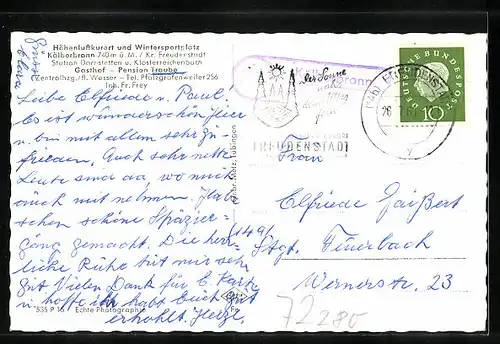 Höhenluftkurort und Wintersportplatz
Kälberbronn 740 m ü. M. / Kr. Freudenstadt
Station Dornstetten u. Klosterreichenbach
Gasthof - Pension Traube
Zentralhzg./fl. Wasser - Tel. Pfalzgrafenweiler 256
Inh. Fr. Frey
Liebe Elfriede u. Paul.
Es ist wunderschön hier
u. bin mit allem sehr zu-
frieden. Auch sehr nette
Leute sind da, wo mich
auch mit nehmen. Habe
schon schöne Spazier-
gäng gemacht. Die herr-
liche Ruhe tut mir sehr
gut. Vielen Dank für E. Karte
u. hoffe ich habt Euch gut
erholt. Herzl.
Grüsse
535 P 15 Echte Photographie
Der Sonne
FREUDENSTADT
DEUTSCHE BUNDESPOST
10
Frau
Elfriede Gaißert
(14a)
Stgt. Feuerbach
Wernerstr. 23
72285